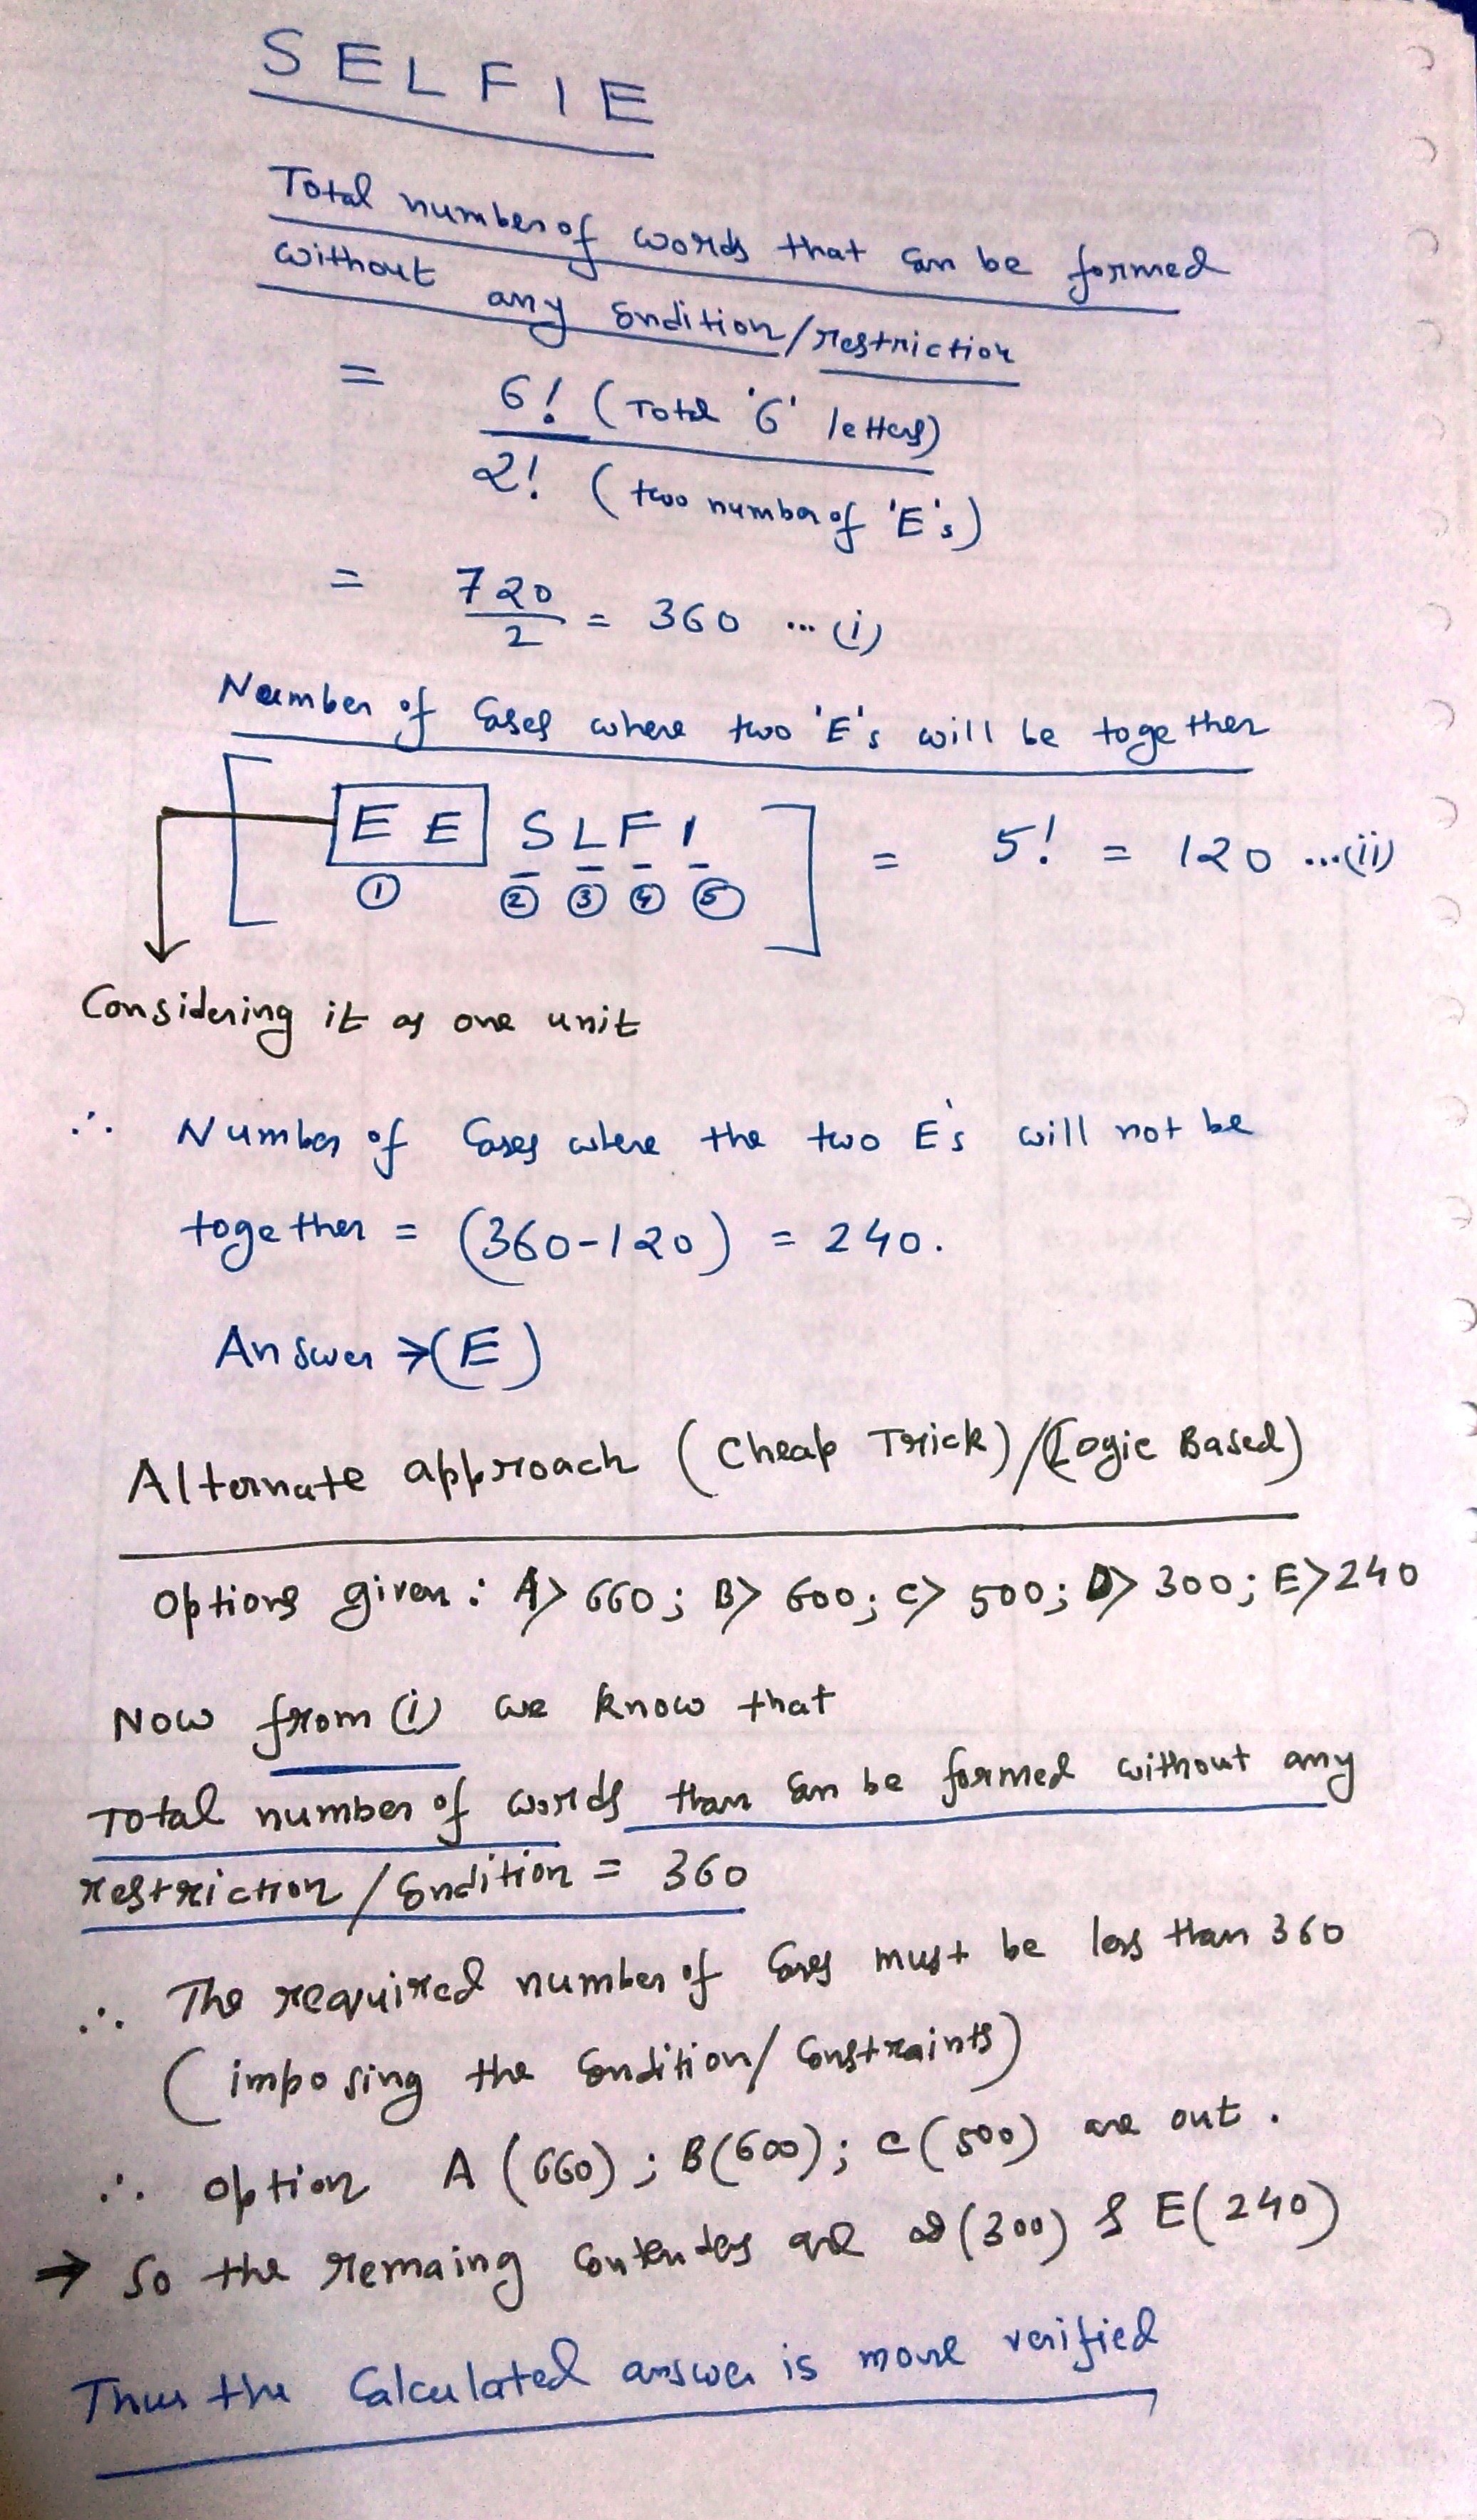 SELFIE
Total number of words that can be formed
without any condition/restriction
= 6! (Total '6' letters)
2! (two number of 'E's)
= 720
2 = 360 ... (i)
Number of Cases where two 'E's will be together
[ E E S L F I ] = 5! = 120 ...(ii)
① ② ③ ④ ⑤
Considering it as one unit
∴ Number of Cases where the two E's will not be
together = (360-120) = 240.
Answer → (E)
Alternate approach (Cheap Trick)/(Logic Based)
Options given: A> 660; B> 600; C> 500; D> 300; E> 240
Now from (i) we know that
Total number of words than can be formed without any
restriction/Condition = 360
∴ The required number of Cases must be less than 360
(imposing the Condition/Constraints)
∴ option A (660); B(600); C(500) are out.
→ So the remaing Contenders are D(300) & E(240)
Thus the Calculated answer is more verified